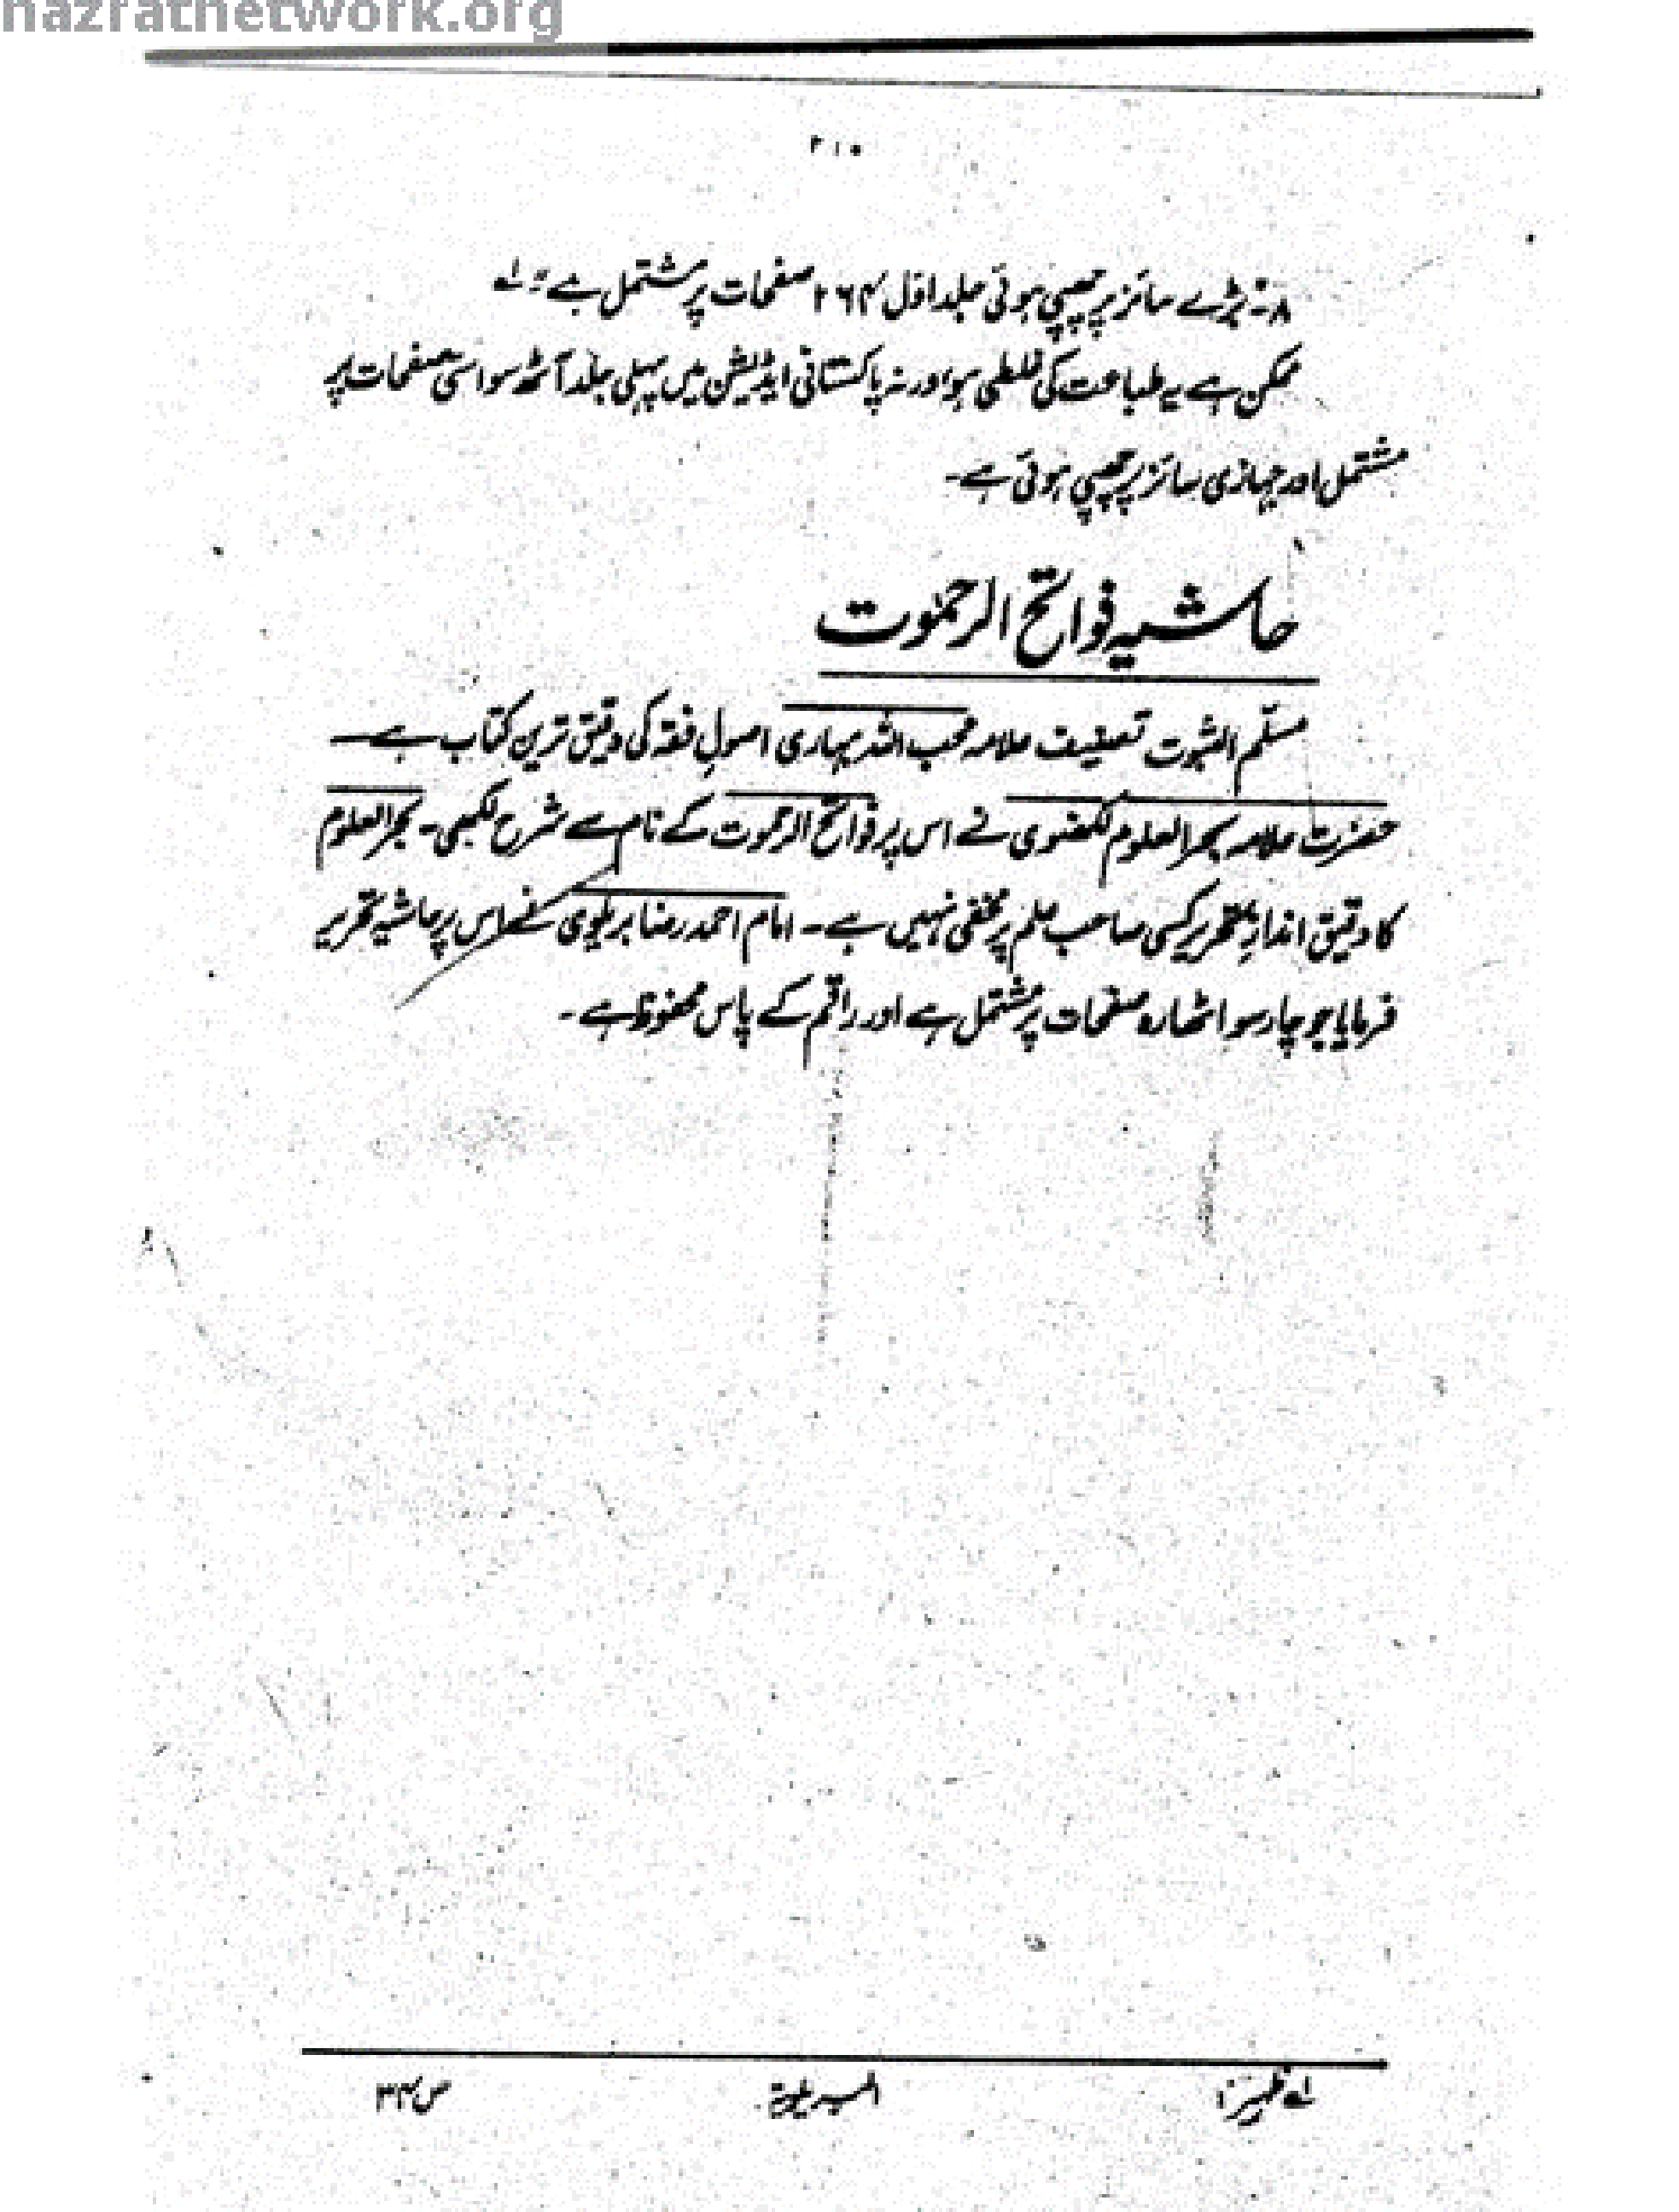 hazratnetwork.org
۲۱۰
۸۔ بڑے سائز پر چھپی ہوئی جلد اوّل ۲۶۴ صفحات پر مشتمل ہے" لے
ممکن ہے یہ طباعت کی غلطی ہو ورنہ پاکستانی ایڈیشن میں پہلی جلد آٹھ سو اسی صفحات پر
مشتمل اور جہازی سائز پر چھپی ہوئی ہے۔
حاشیہ فواتح الرحموت
مسلّم الثبوت تصنیف علامہ محب اللہ بہاری اصولِ فقہ کی دقیق ترین کتاب ہے۔
حضرت علامہ بحر العلوم لکھنوی نے اس پر فواتح الرحموت کے نام سے شرح لکھی۔ بحر العلوم
کا دقیق اندازِ تحریر کسی صاحبِ علم پر مخفی نہیں ہے۔ امام احمد رضا بریلوی نے اس پر حاشیہ تحریر
فرمایا جو چار سو اٹھارہ صفحات پر مشتمل ہے اور راقم کے پاس محفوظ ہے۔
لے ظہیر: البریلویۃ ص ۳۴